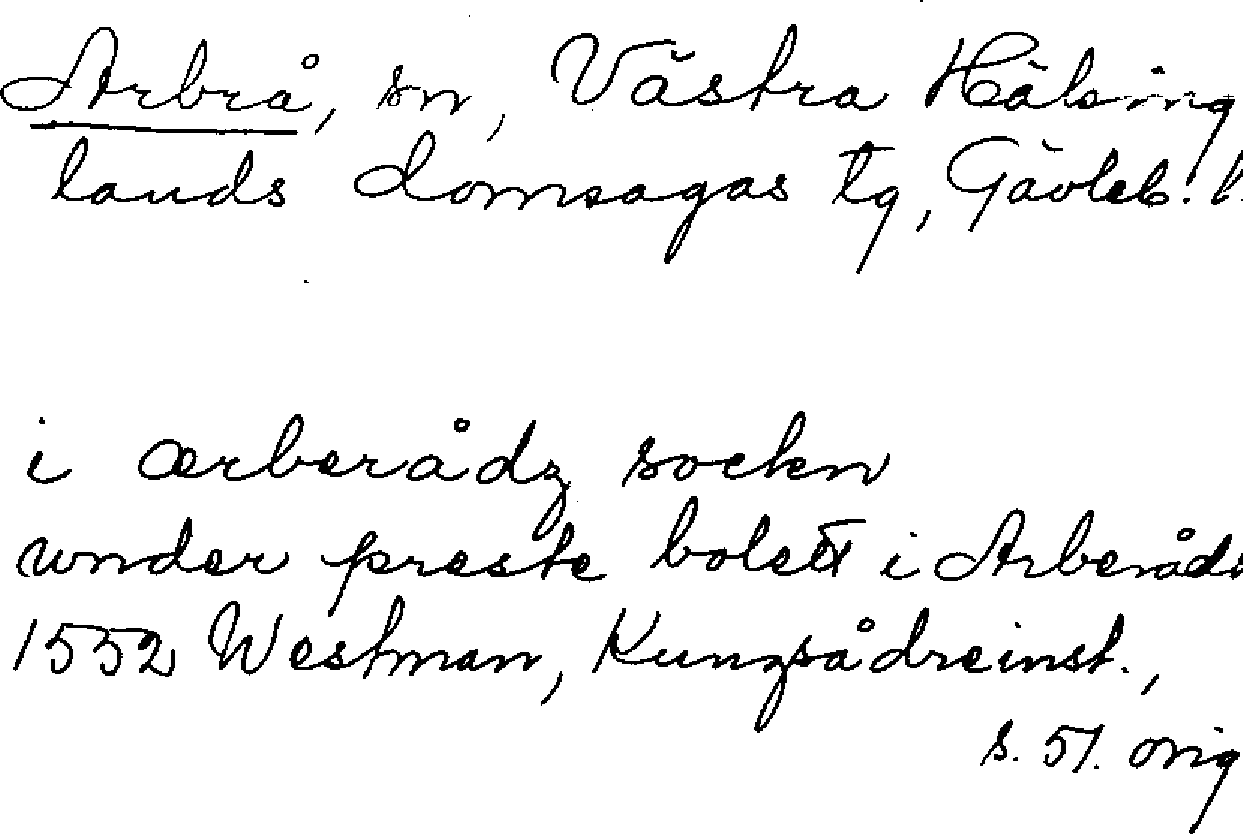 Arbrå, sn, Västra Hälsing
lands domsagas tg, Gävleb. l.
i ærberådz sockn
under preste bolett i Arberåds
1552 Westman, Kungsådreinst.,
s. 51. orig